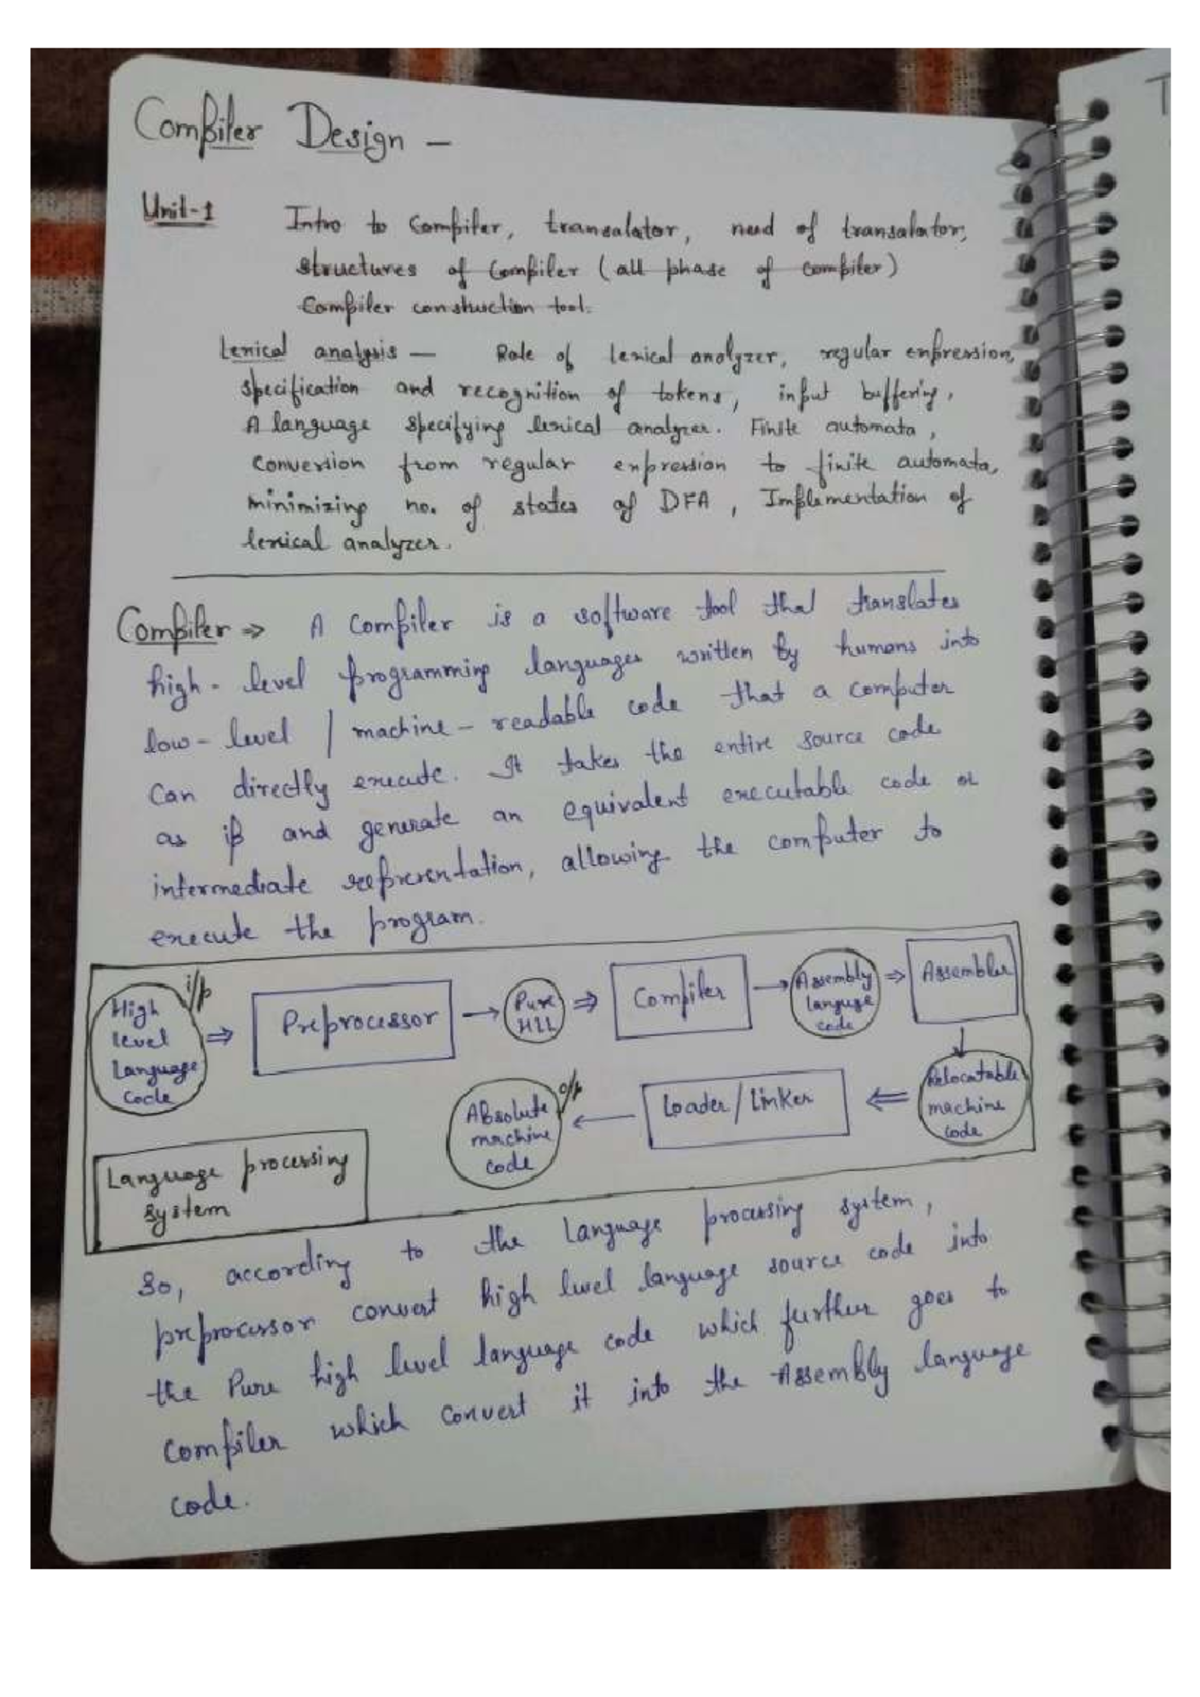 Compiler Design -
Unit-1 Intro to Compiler, transalator, need of transalator,
structures of Compiler (all phase of compiler)
Compiler construction tool.
Lexical analysis - Role of lexical analyzer, regular expression,
specification and recognition of tokens, input buffering,
A language specifying lexical analyzer. Finite automata,
Conversion from regular expression to finite automata,
minimizing no. of states of DFA, Implementation of
lexical analyzer.
Compiler => A Compiler is a software tool that translates
high-level programming languages written by humans into
low-level / machine-readable code that a computer
can directly execute. It takes the entire source code
as i/p and generate an equivalent executable code or
intermediate representation, allowing the computer to
execute the program.
i/p
High level language code ⇒ Preprocessor → Pure HLL ⇒ Compiler → Assembly languge code ⇒ Assembler
↓
Absolute machine code o/p ← Loader/Linker ⇐ Relocatable machine code
Language processing
system
So, according to the language processing system,
preprocessor convert high level language source code into
the Pure high level language code which further goes to
compiler which convert it into the Assembly language
code.
T